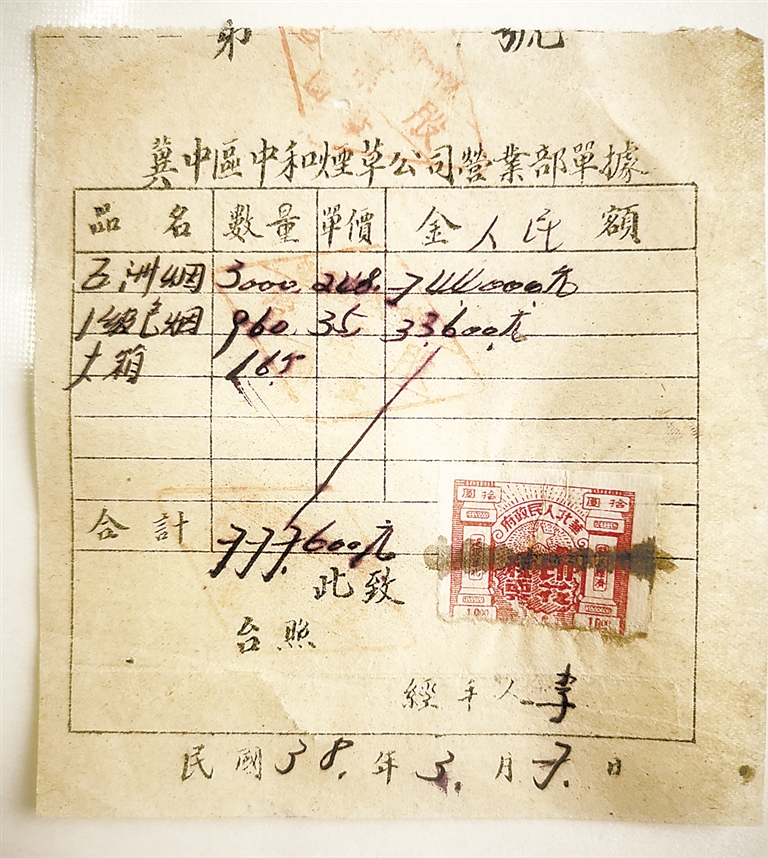 弟 號
冀中區中和煙草公司營業部單據
品名 數量 單價 金人民額
五洲烟 3000. 248. 744000元
1级包烟 960. 35 33.600元
大箱 165
合計 777.600元
此致
台照
經手人 李
民國38.年3.月7.日
拾圓 拾圓
華北人民政府
印花
税票
10.00 10.00